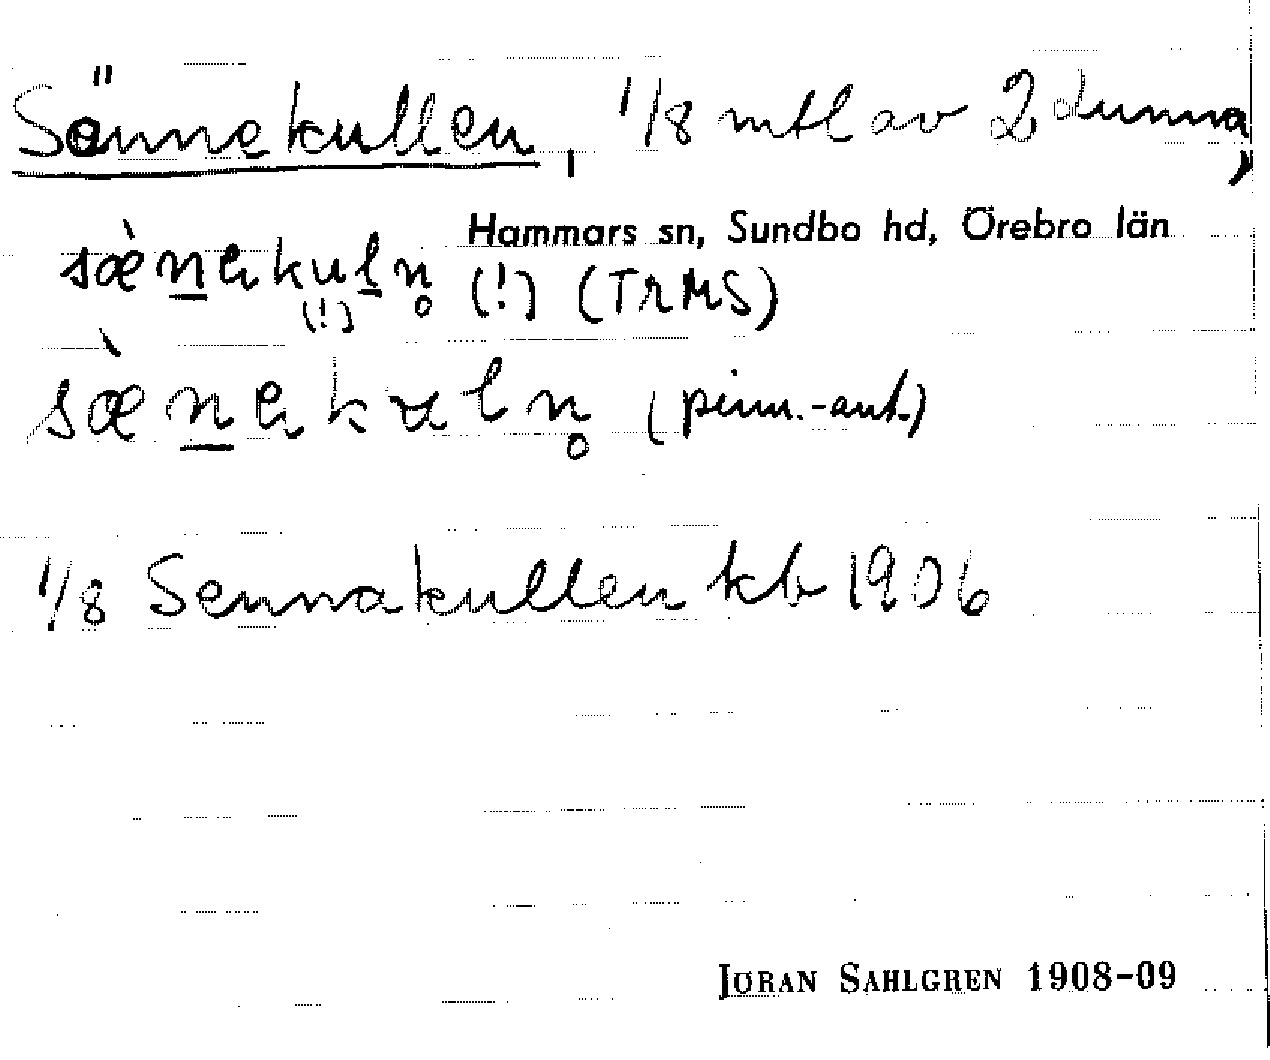 Sönnekullen, 1/8 mtl av 2 dunna,
Hammars sn, Sundbo hd, Örebro län
(!) (!) (TRMS)
(pinn.-ant.)
1/8 Sennakullen kb 1906
JÖRAN SAHLGREN 1908-09